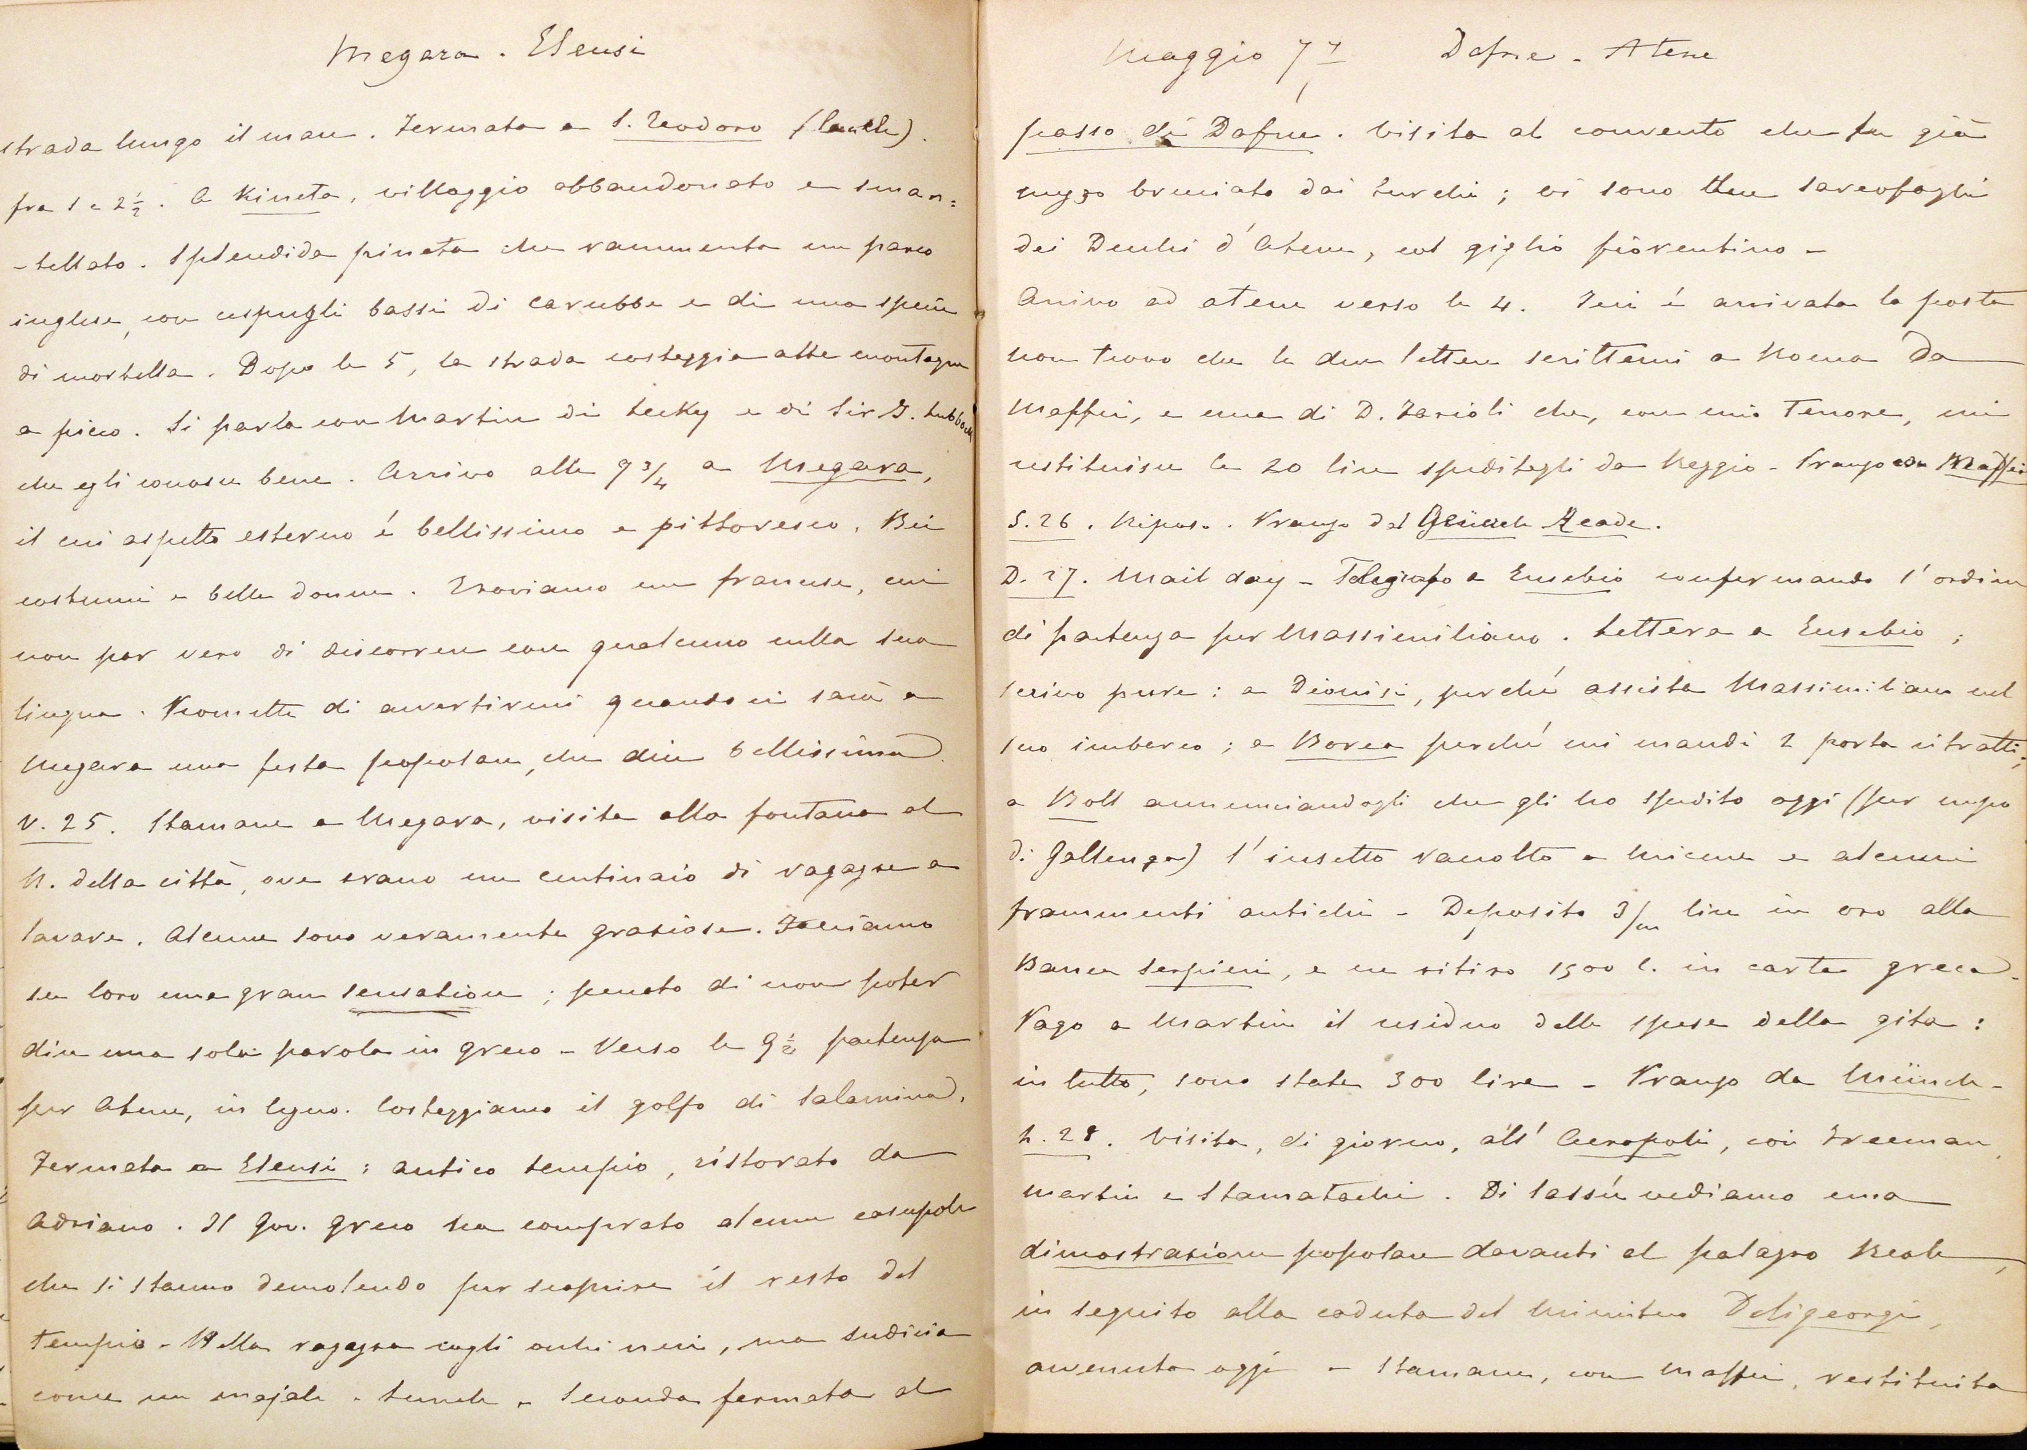 Megara . Eleusi
strada lungo il mare . Fermata a S. Teodoro (lunch).
fra 1 e 2½ . A Kineta, villaggio abbandonato e sman=
-tellato . Splendida pineta che rammenta un parco
inglese, con cespugli bassi di carubbe e di una specie
di mortella . Dopo le 5, la strada costeggia alte montagne
a picco . Si parla con Martin di Lecky e di Sir J. Lubbock
che egli conosce bene . Arrivo alle 9¾ a Megara,
il cui aspetto esterno é bellissimo e pittoresco. Bei
costumi e belle donne . Troviamo un francese, cui
non par vero di discorrere con qualcuno nella sua
lingua . Promette di avvertirmi quando ci sarà a
Megara una festa popolare, che dice bellissima.
V. 25. Stamane a Megara, visita alla fontana al
N. della città, ove erano un centinaio di ragazze a
lavare. Alcune sono veramente graziose. Facciamo
su loro una gran sensation ; peccato di non poter
dire una sola parola in greco - Verso le 9½ partenza
per Atene, in legno. Costeggiamo il golfo di Salamina.
Fermata a Eleusi : antico tempio, ristorato da
Adriano . Il Gov. greco ha comprato alcune casupole
che si stanno demolendo per scoprire il resto del
tempio - Bella ragazza cogli occhi neri, ma sudicia
come un majale - Lunch - Seconda fermata al
Maggio 77 Dafne - Atene
passo di Dafne . Visita al convento che fu già
mezzo bruciato dai turchi ; vi sono due sarcofaghi
dei Duchi d'Atene, col giglio fiorentino -
Arrivo ad Atene verso le 4. Ieri é arrivata la posta
non trovo che le due lettere scrittemi a Roma da
Maffei, e una di D. che, con mio Tenore, mi
restituisce le 20 lire speditegli da Reggio - Pranzo con Maffei
S. 26 . Riposo . Pranzo dal Reade.
D. 27. Mail day - Telegrafo a Eusebio confermando l'ordine
di partenza per Massimiliano . Lettera a Eusebio ;
scrivo pure : a Dionisi, perché assista Massimiliano nel
suo imbarco ; a Borea perché mi mandi 2 porta ritratti ;
a Boll annunciandogli che gli ho spedito oggi (per mezzo
di Gallenga) l'insetto raccolto a Micene e alcuni
frammenti antichi - Deposito 3/m lire in oro alla
Banca Serpieri, e ne ritiro 1500 l. in carta greca -
Pago a Martin il residuo delle spese della gita :
in tutto, sono state 300 lire - Pranzo da Münch -
L. 28. Visita, di giorno, all'Acropoli, coi Freeman,
Martin e Stamatachi . Di lassú vediamo una
dimostrazione popolare davanti al palazzo Reale,
in seguito alla caduta del Ministero Deligeorgi,
avvenuta oggi - Stamane, con Maffei, restituita